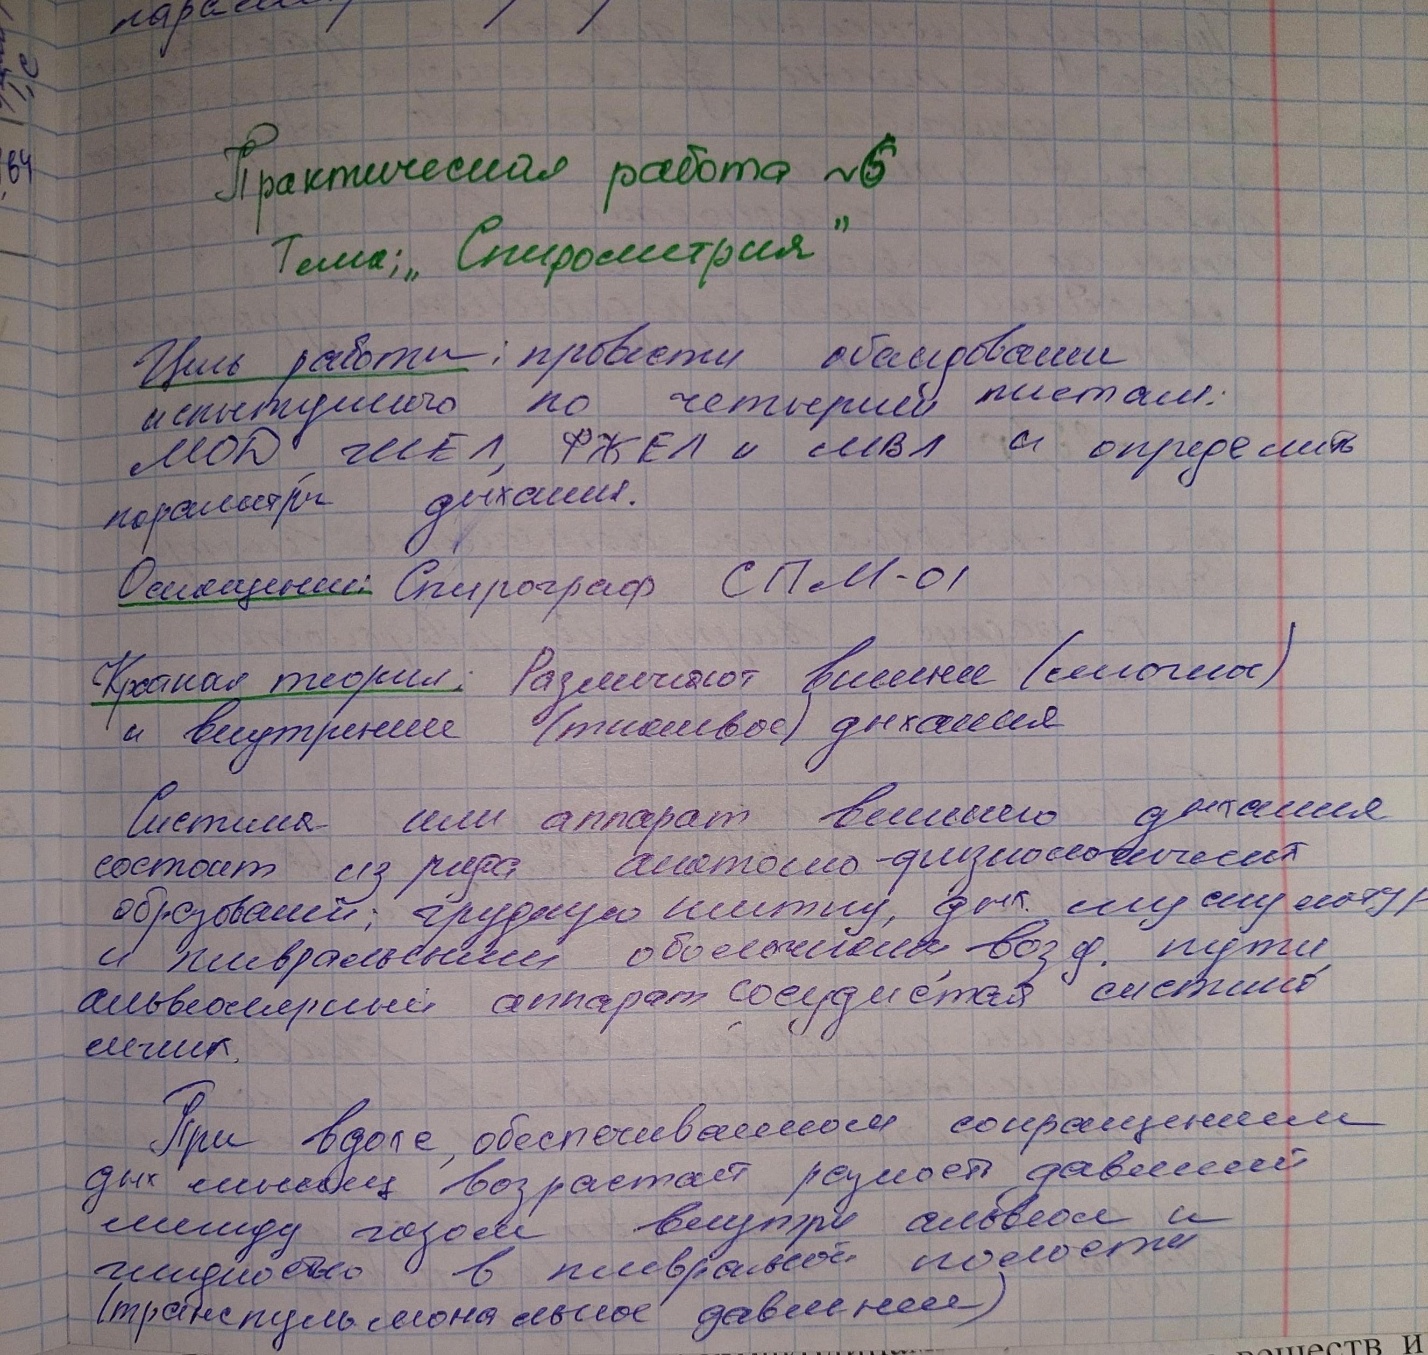 Практическая работа №6
Тема: „Спирометрия”
Цель работы: провести обследование
испытуемого по четырем тестам:
МОД, ЖЕЛ, ФЖЕЛ и МВЛ и определить
параметры дыхания.
Оснащение: Спирограф СПМ-01
Краткая теория: Различают внешнее (легочное)
и внутреннее (тканевое) дыхания
Система или аппарат внешнего дыхания
состоит из ряда анатомо-физиологических
образований: грудную клетку, дых. мускулатур
и плевральными оболочками, возд. пути,
альвеолярный аппарат сосудистая система
легких.
При вдохе, обеспечиваемом сокращением
дых мышц возрастает разность давлений
между газом внутри альвеол и
жидкостью в плевральной полости
(транспульмональное давление)
веществ и